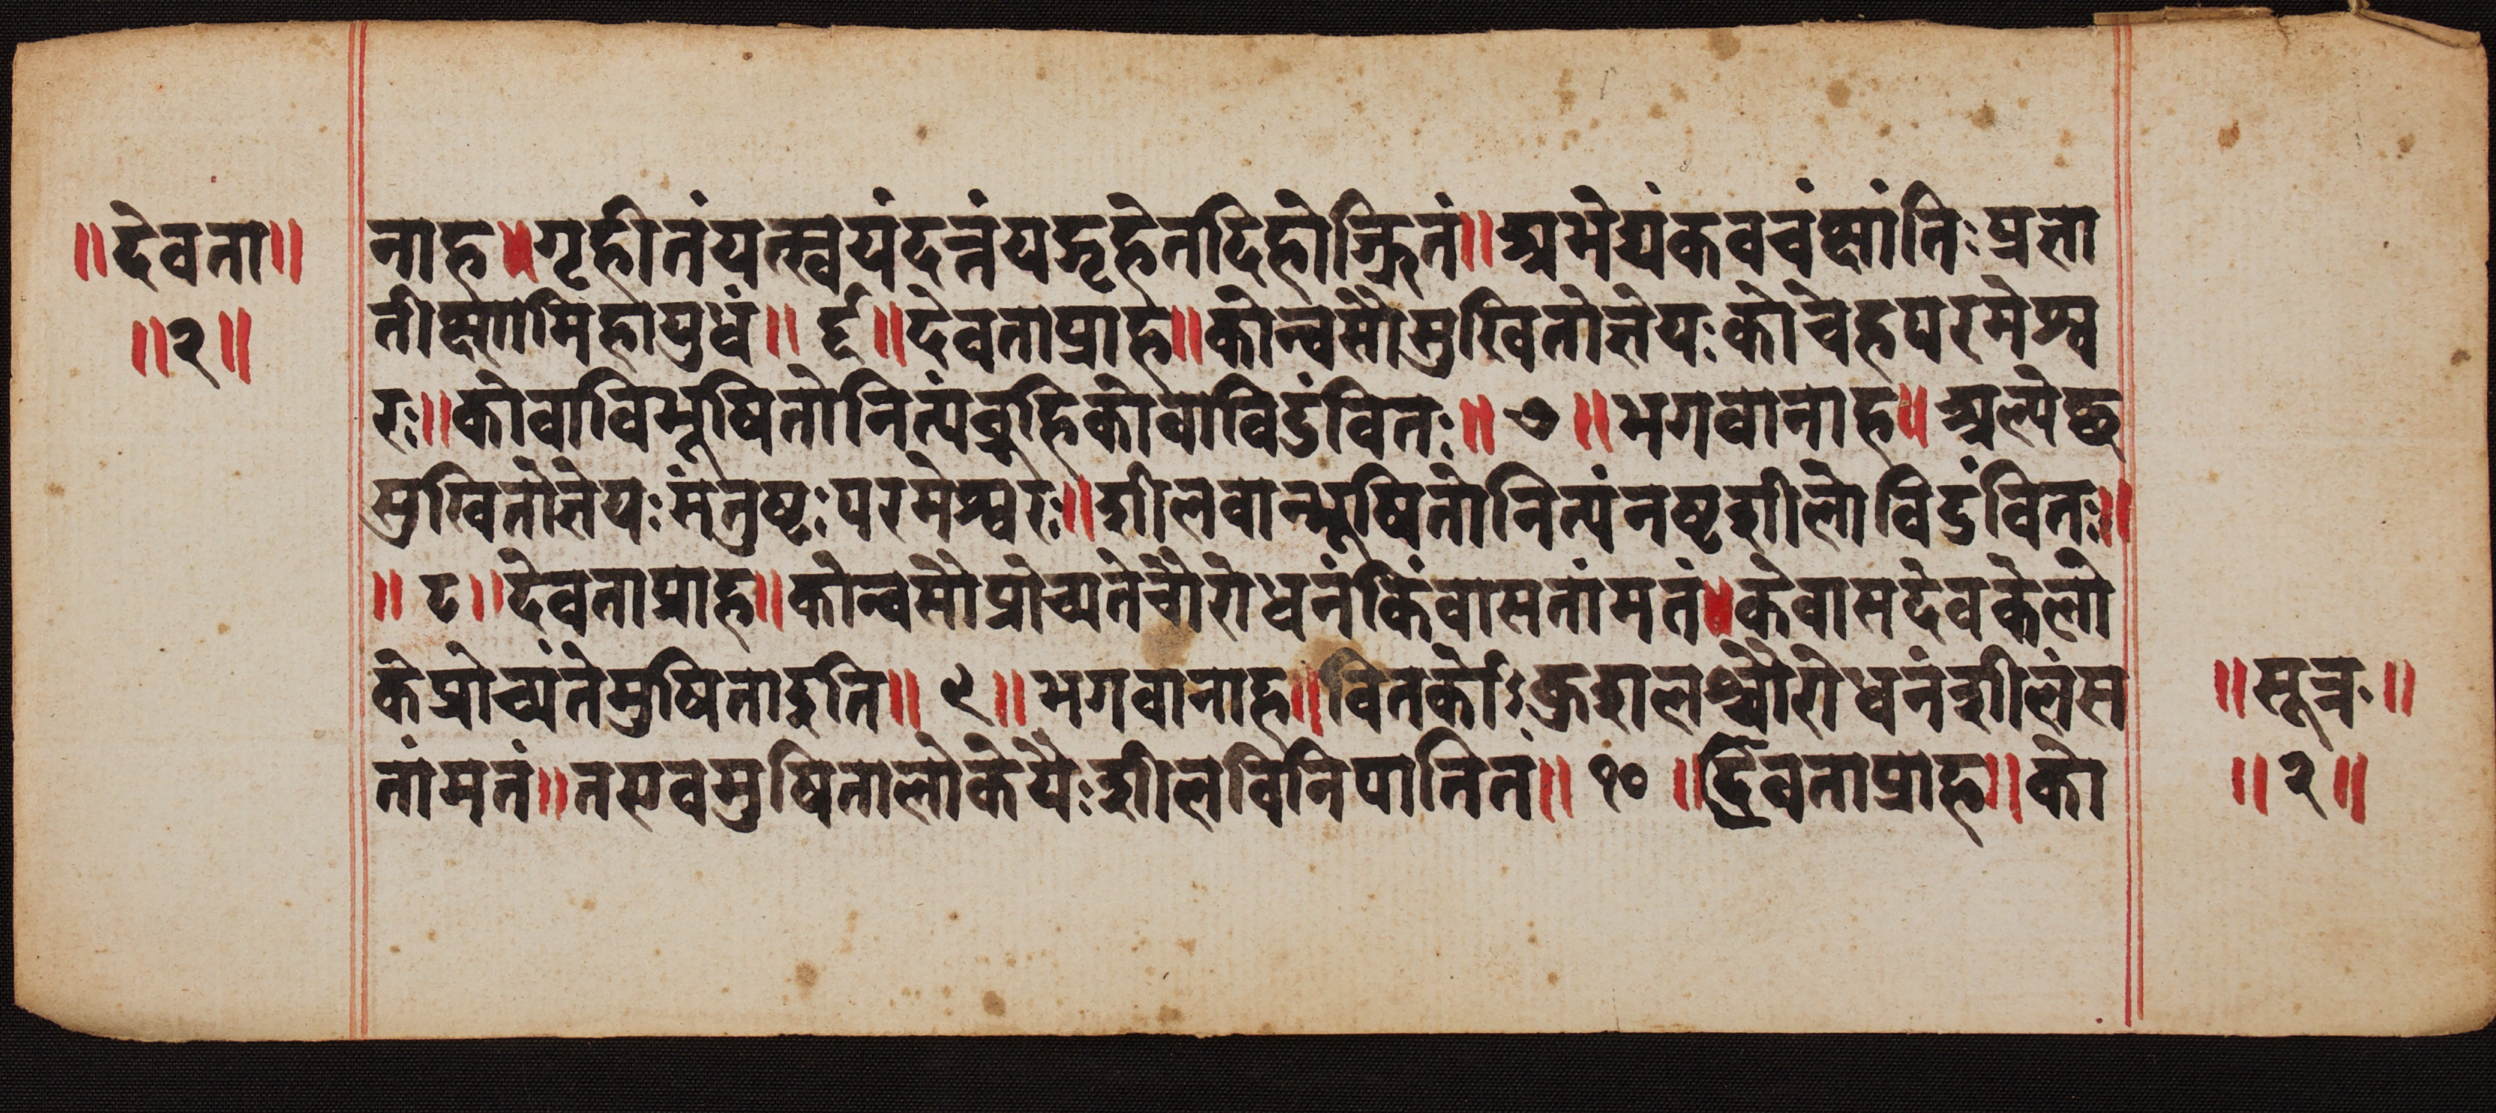 ॥देवता॥
॥२॥
नाह॥गृहीतंयत्स्वयंदत्तंयद्गृहेतदिहोज्झितं॥अभेद्यंकवचंक्षांतिःप्रज्ञा
तीक्ष्णमिहायुधं॥६॥देवताप्राह॥कोन्वसौसुखितोज्ञेयःकोचेहपरमेश्व
रः॥कोवाविभूषितोनित्यंब्रूहिकोवाविडंवितः॥७॥भगवानाह॥अल्पेच्छ
सुखितोज्ञेयःसंतुष्टःपरमेश्वरः॥शीलवान्भूषितोनित्यंनष्टशीलोविडंवितः॥
॥८॥देवताप्राह॥कोन्वसौप्रोच्यतेचौरोधनंकिंवासतांमतं॥केवासदेवकेलो
केप्रोच्यंतेमुषिताइति॥९॥भगवानाह॥वितर्कोऽकुशलश्चौरोधनंशीलंस
तांमतं॥तएवमुषितालोकेयैःशीलविनिपातितं॥१०॥देवताप्राह॥को
॥सूत्र॥
॥२॥